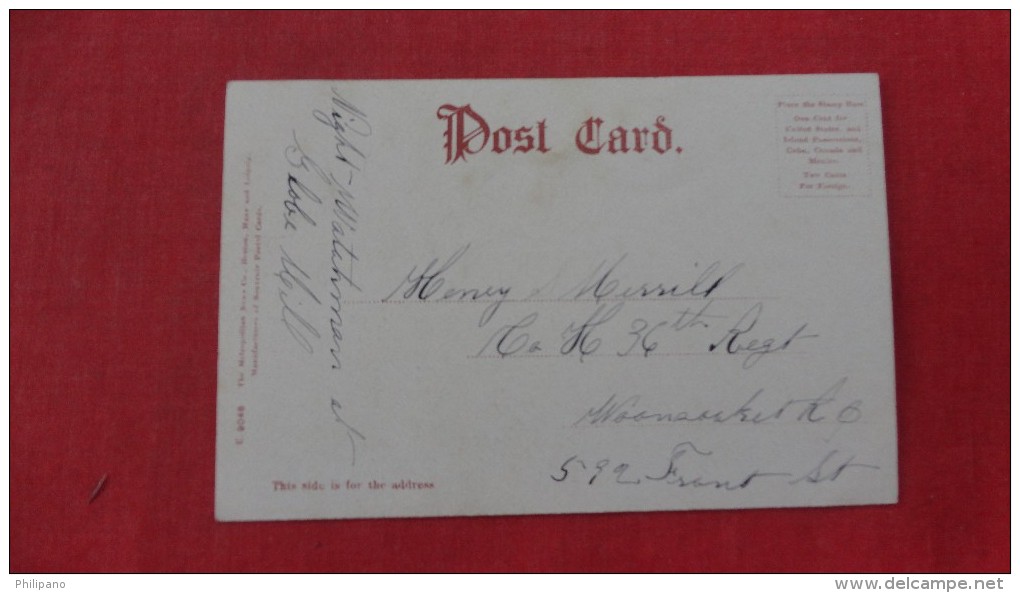 Post Card.
Place the Stamp Here
One Cent for
United States, and
Island Possessions,
Cuba, Canada and
Mexico.
Two Cents
For Foreign.
Night-Watchman at
Globe Mill
Henry Merrill
Co H 36th Regt
Woonsocket R
592 Front St
This side is for the address
E 9048 The Metropolitan News Co., Boston, Mass and Leipzig.
Manufacturers of Souvenir Postal Cards.
Philipano
www.delcampe.net